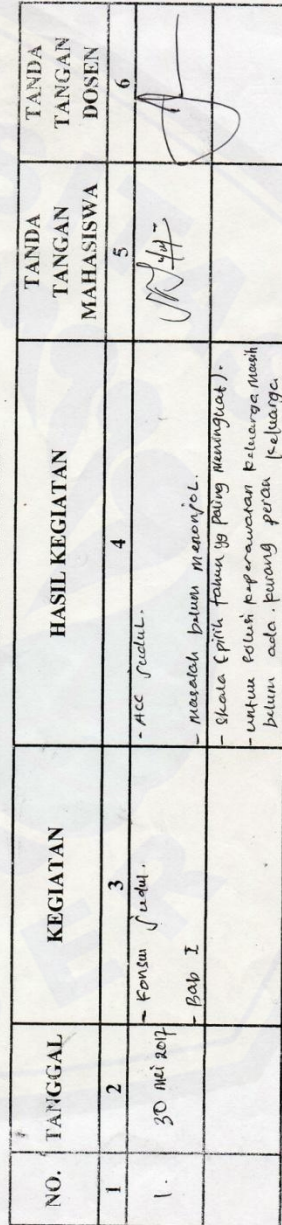 NO.
TANGGAL
KEGIATAN
HASIL KEGIATAN
TANDA
TANGAN
MAHASISWA
TANDA
TANGAN
DOSEN
1
2
3
4
5
6
1.
30 Mei 2017
- Konsul Judul.
- Bab I
- ACC Judul.
- Masalah belum menonjol.
- Skala (pilih tahun yg paling meningkat).
- untuk solusi keperawatan keluarga masih
belum ada. kurang peran keluarga